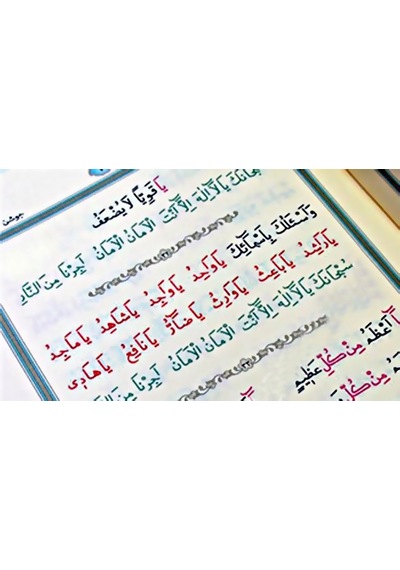 جوشن
يَا قَوِيًّا لَا يُضْعَفُ
سُبْحَانَكَ يَا لَآ اِلٰهَ اِلَّآ اَنْتَ الْاَمَانُ الْاَمَانُ اَجِرْنَا مِنَ النَّارِ
وَاَسْئَلُكَ بِاَسْمَآئِكَ يَا وَاحِدُ يَا وَاجِدُ يَا شَاهِدُ يَا مَاجِدُ
يَا رَاشِدُ يَا بَاعِثُ يَا وَارِثُ يَا ضَآرُّ يَا نَافِعُ يَا هَادِى
سُبْحَانَكَ يَا لَآ اِلٰهَ اِلَّآ اَنْتَ الْاَمَانُ الْاَمَانُ اَجِرْنَا مِنَ النَّارِ
اَعْظَمُ مِنْ كُلِّ عَظِيمٍ
مِنْ كُلِّ